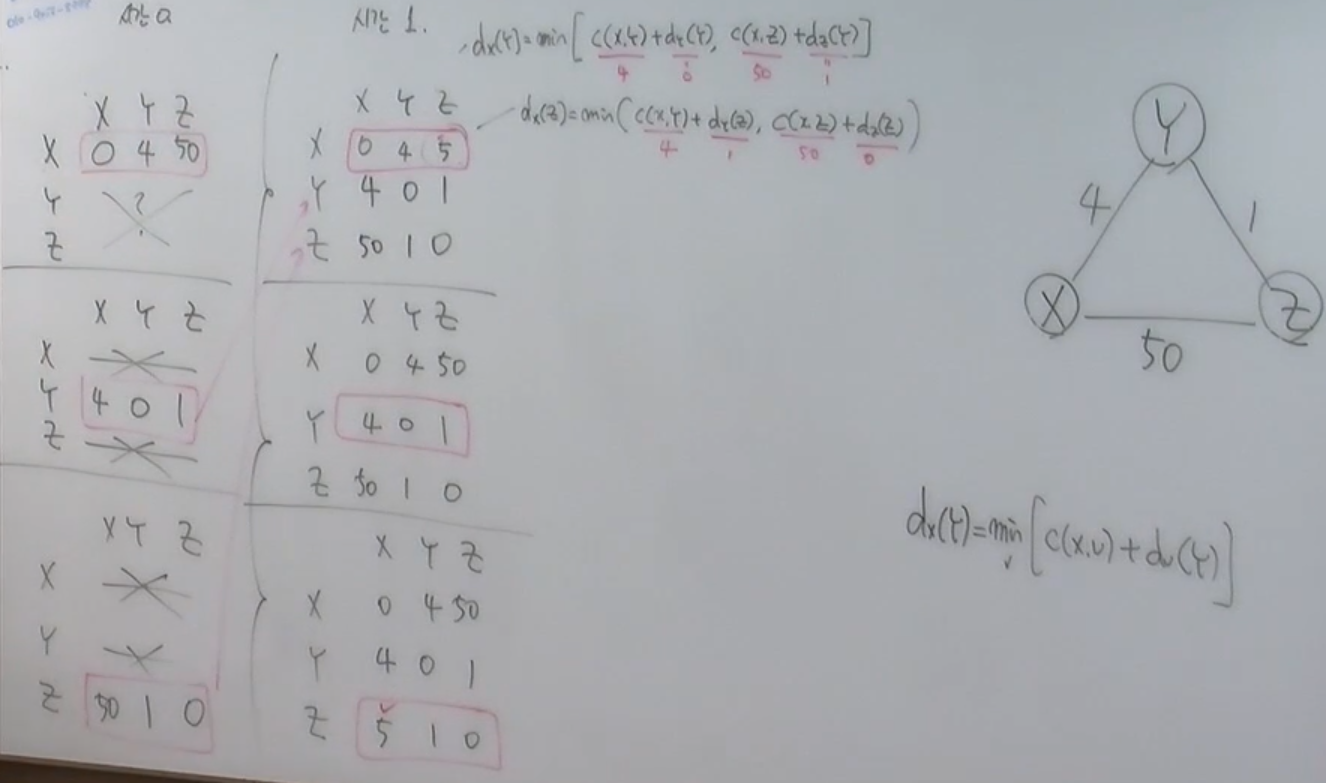 시간 0
X Y Z
X 0 4 50
Y ?
Z
X Y Z
X
Y 4 0 1
Z
X Y Z
X
Y
Z 50 1 0
시간 1.
X Y Z
X 0 4 5
Y 4 0 1
Z 50 1 0
X Y Z
X 0 4 50
Y 4 0 1
Z 50 1 0
X Y Z
X 0 4 50
Y 4 0 1
Z 5 1 0
dx(Y)=min[c(x,Y)+dY(Y), c(x,Z)+dz(Y)]
4 0 50 1
dx(Z)=min(c(x,Y)+dY(Z), c(x,Z)+dz(Z))
4 1 50 0
Y
4 1
X Z
50
dx(Y)=min[c(x,v)+dv(Y)]
v